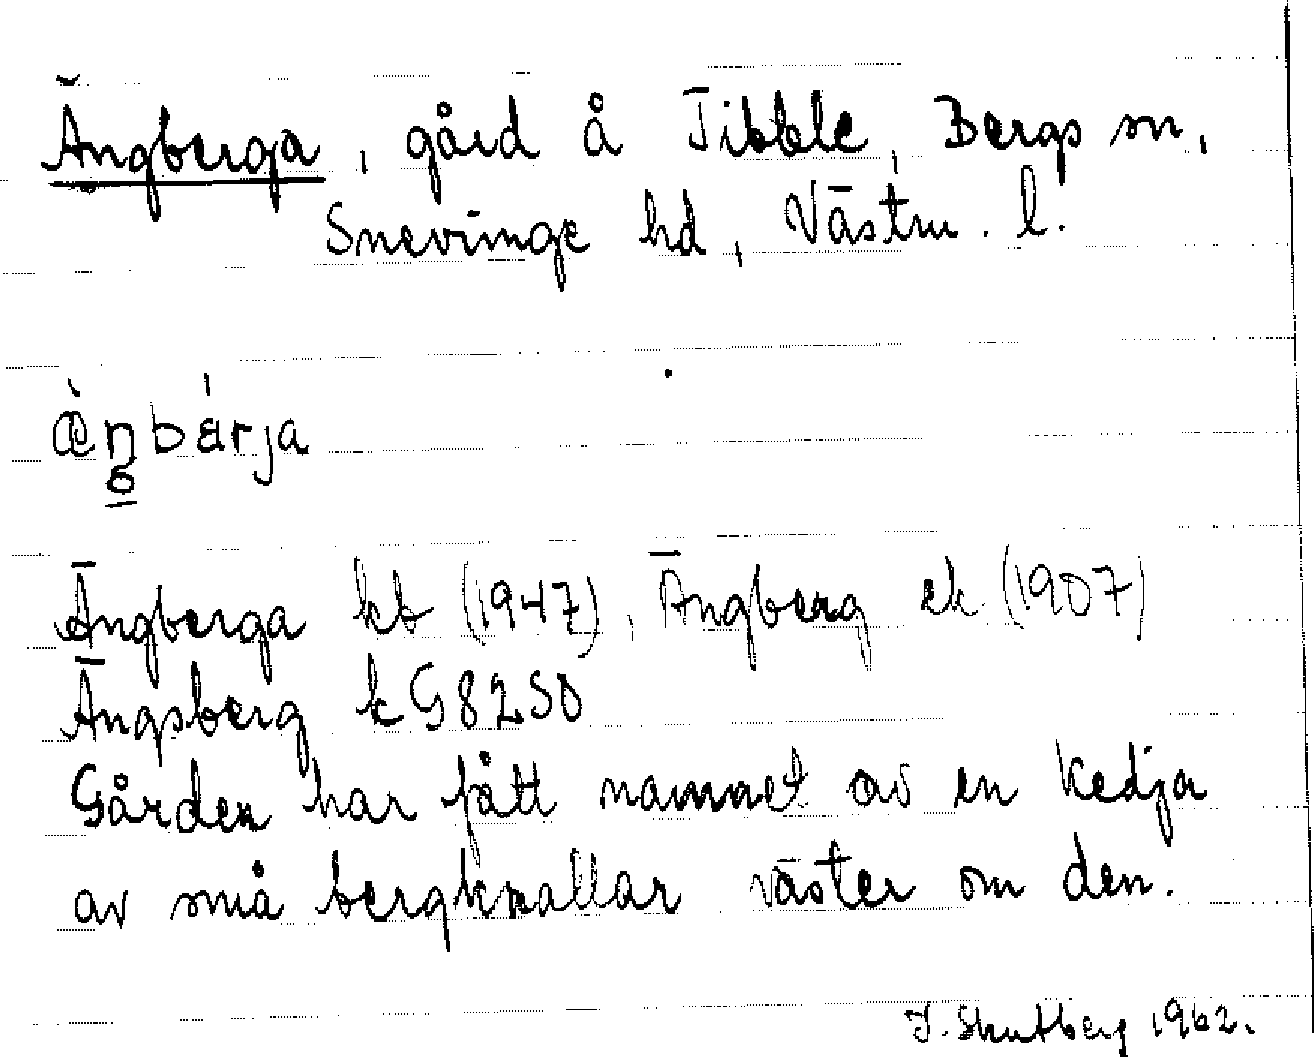 Ängberga, gård å Tibble, Bergs sn,
Snevringe hd, Västm. l.
æ̀ŋbárja
Ängberga kb (1947), Ängberg ek (1907)
Ängsberg kG8250
Gården har fått namnet av en kedja
av små bergknallar väster om den.
1962.